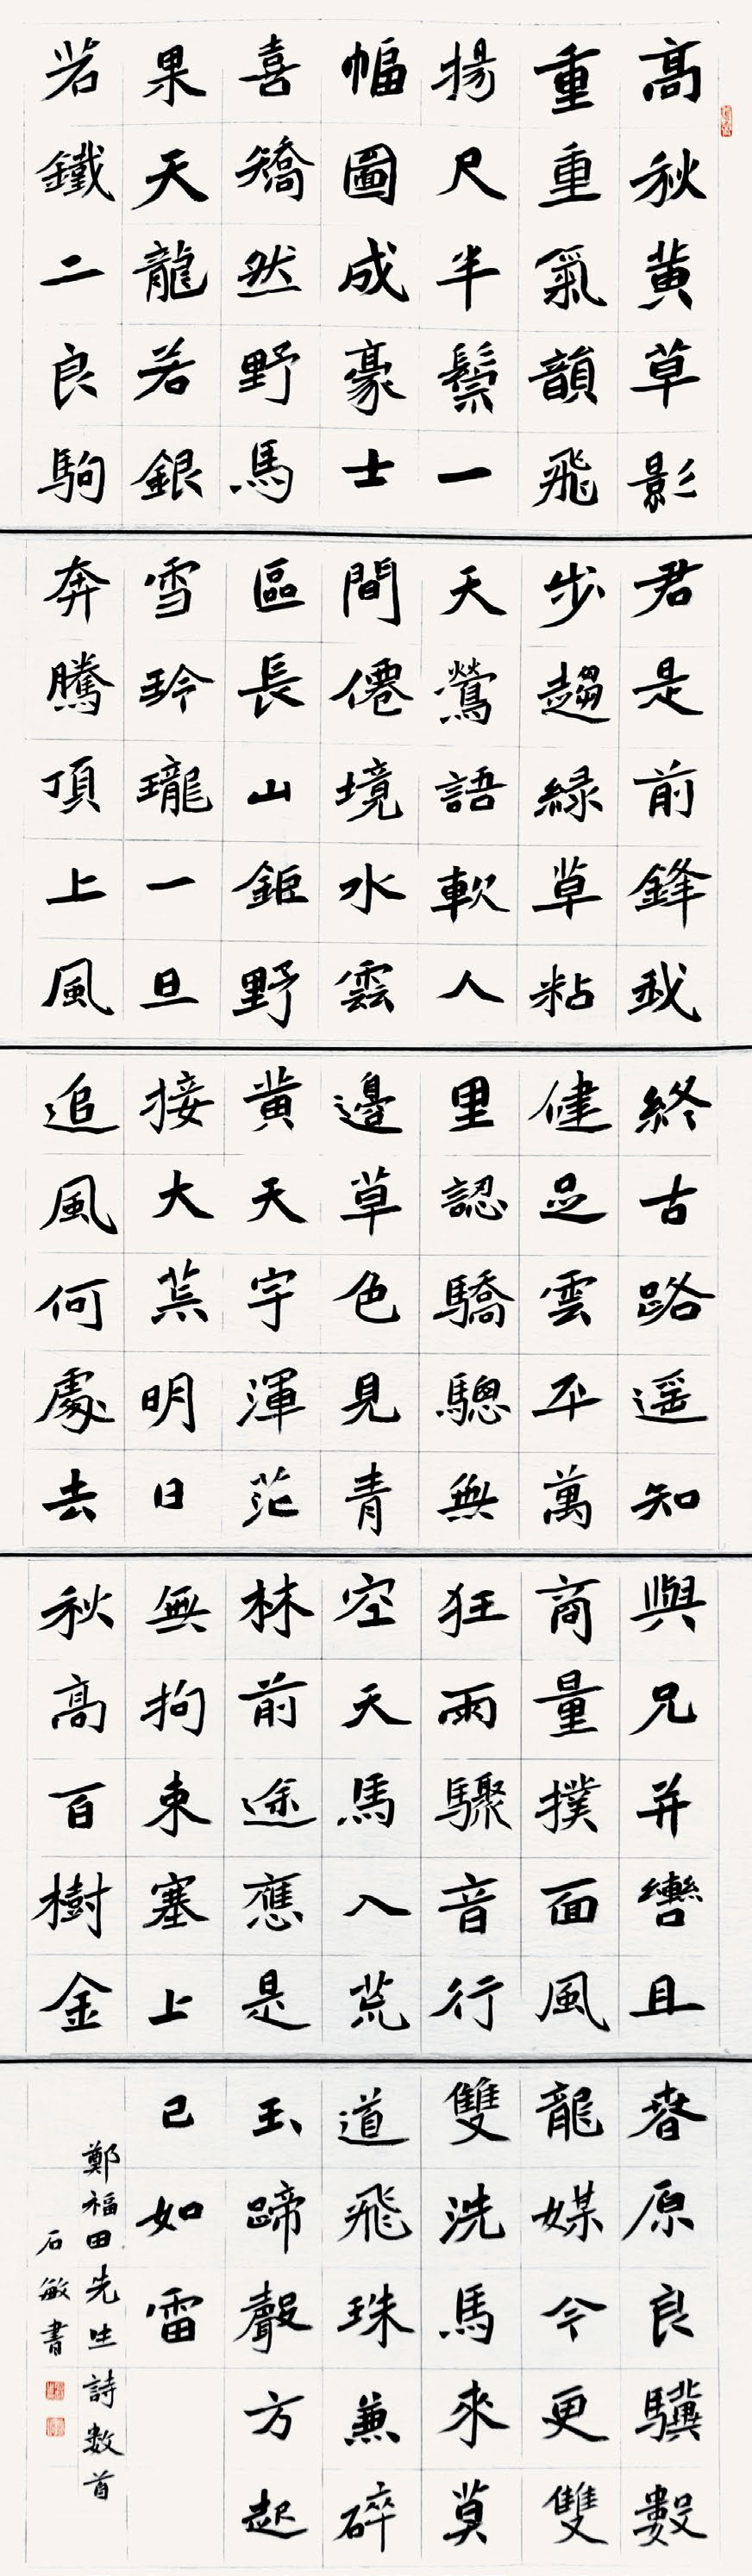 高秋黃草影
重重氣韻飛
揚尺半鬃一
幅圖成豪士
喜矯然野馬
果天龍若銀
若鐵二良駒
君是前鋒我
步趨綠草粘
天鶯語軟人
間僊境水雲
區長山鉅野
雪玲瓏一旦
奔騰頂上風
終古路遥知
健足雲平萬
里認驕驄無
邊草色見青
黃天宇渾茫
接大荒明日
追風何處去
與兄并轡且
商量撲面風
狂雨驟音行
空天馬入荒
林前途應是
無拘束塞上
秋高百樹金
春原良驥數
龍媒今更雙
雙洗馬來莫
道飛珠兼碎
玉蹄聲方起
已如雷
鄭福田先生詩數首
石敏書